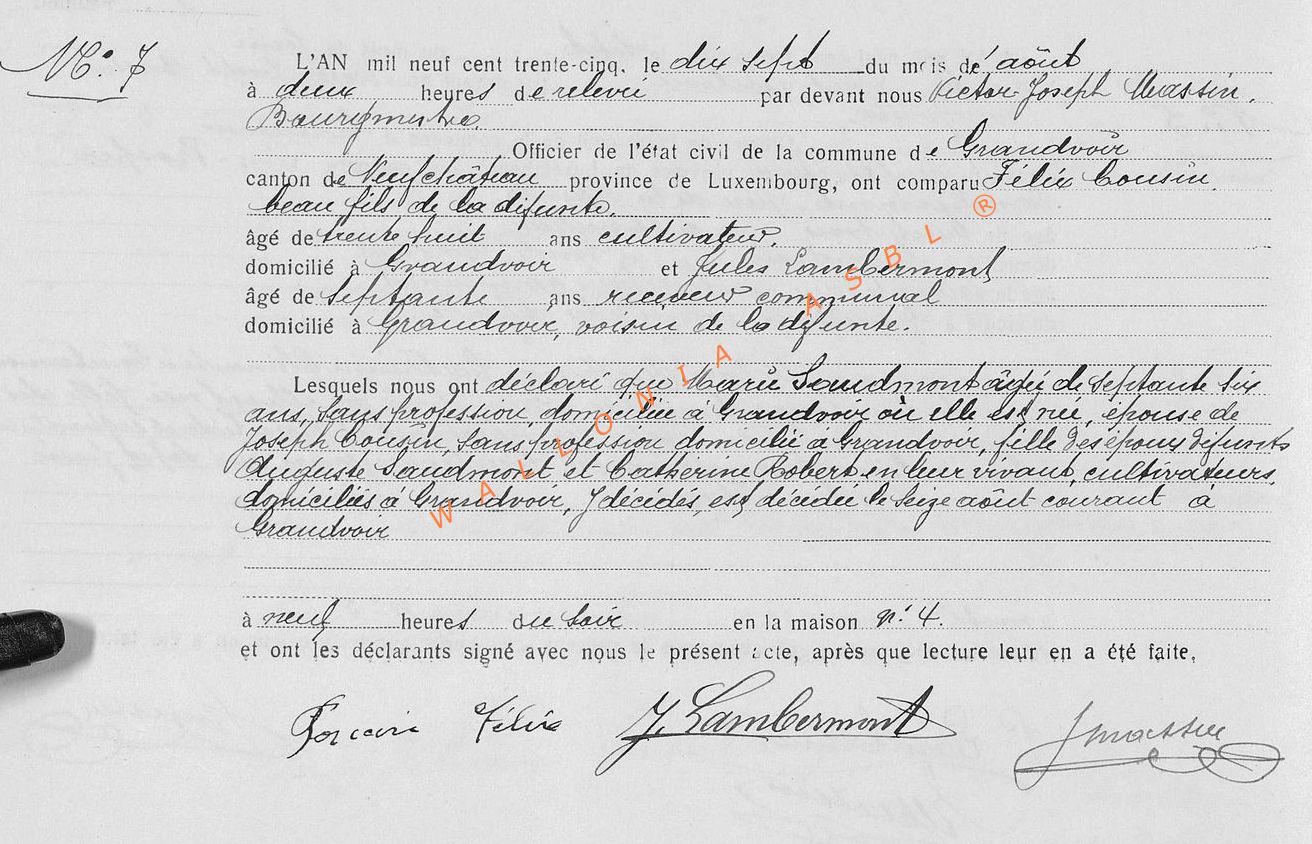 N°. 7
L'AN mil neuf cent trente-cinq, le dix sept du mois de août
à deux heures de relevée par devant nous Victor Joseph Massin,
Bourgmestre
Officier de l'état civil de la commune de Grandvoir
canton de Neufchâteau province de Luxembourg, ont comparu Félix Cousin,
beau fils de la défunte,
âgé de trente huit ans cultivateur,
domicilié à Grandvoir et Jules Lambermont
âgé de septante ans receveur communal
domicilié à Grandvoir, voisin de la défunte.
Lesquels nous ont déclaré que Marie Saudmont âgée de septante six
ans, sans profession, domiciliée à Grandvoir où elle est née, épouse de
Joseph Cousin, sans profession domicilié à Grandvoir, fille des époux défunts
Auguste Saudmont et Catherine Robert en leur vivant, cultivateurs,
domiciliés à Grandvoir, y décédés, est décédée le seize août courant à
Grandvoir
à neuf heures du soir en la maison n° 4.
et ont les déclarants signé avec nous le présent acte, après que lecture leur en a été faite,
Félix J. Lambermont J Massin
WALLONIA ASBL ®